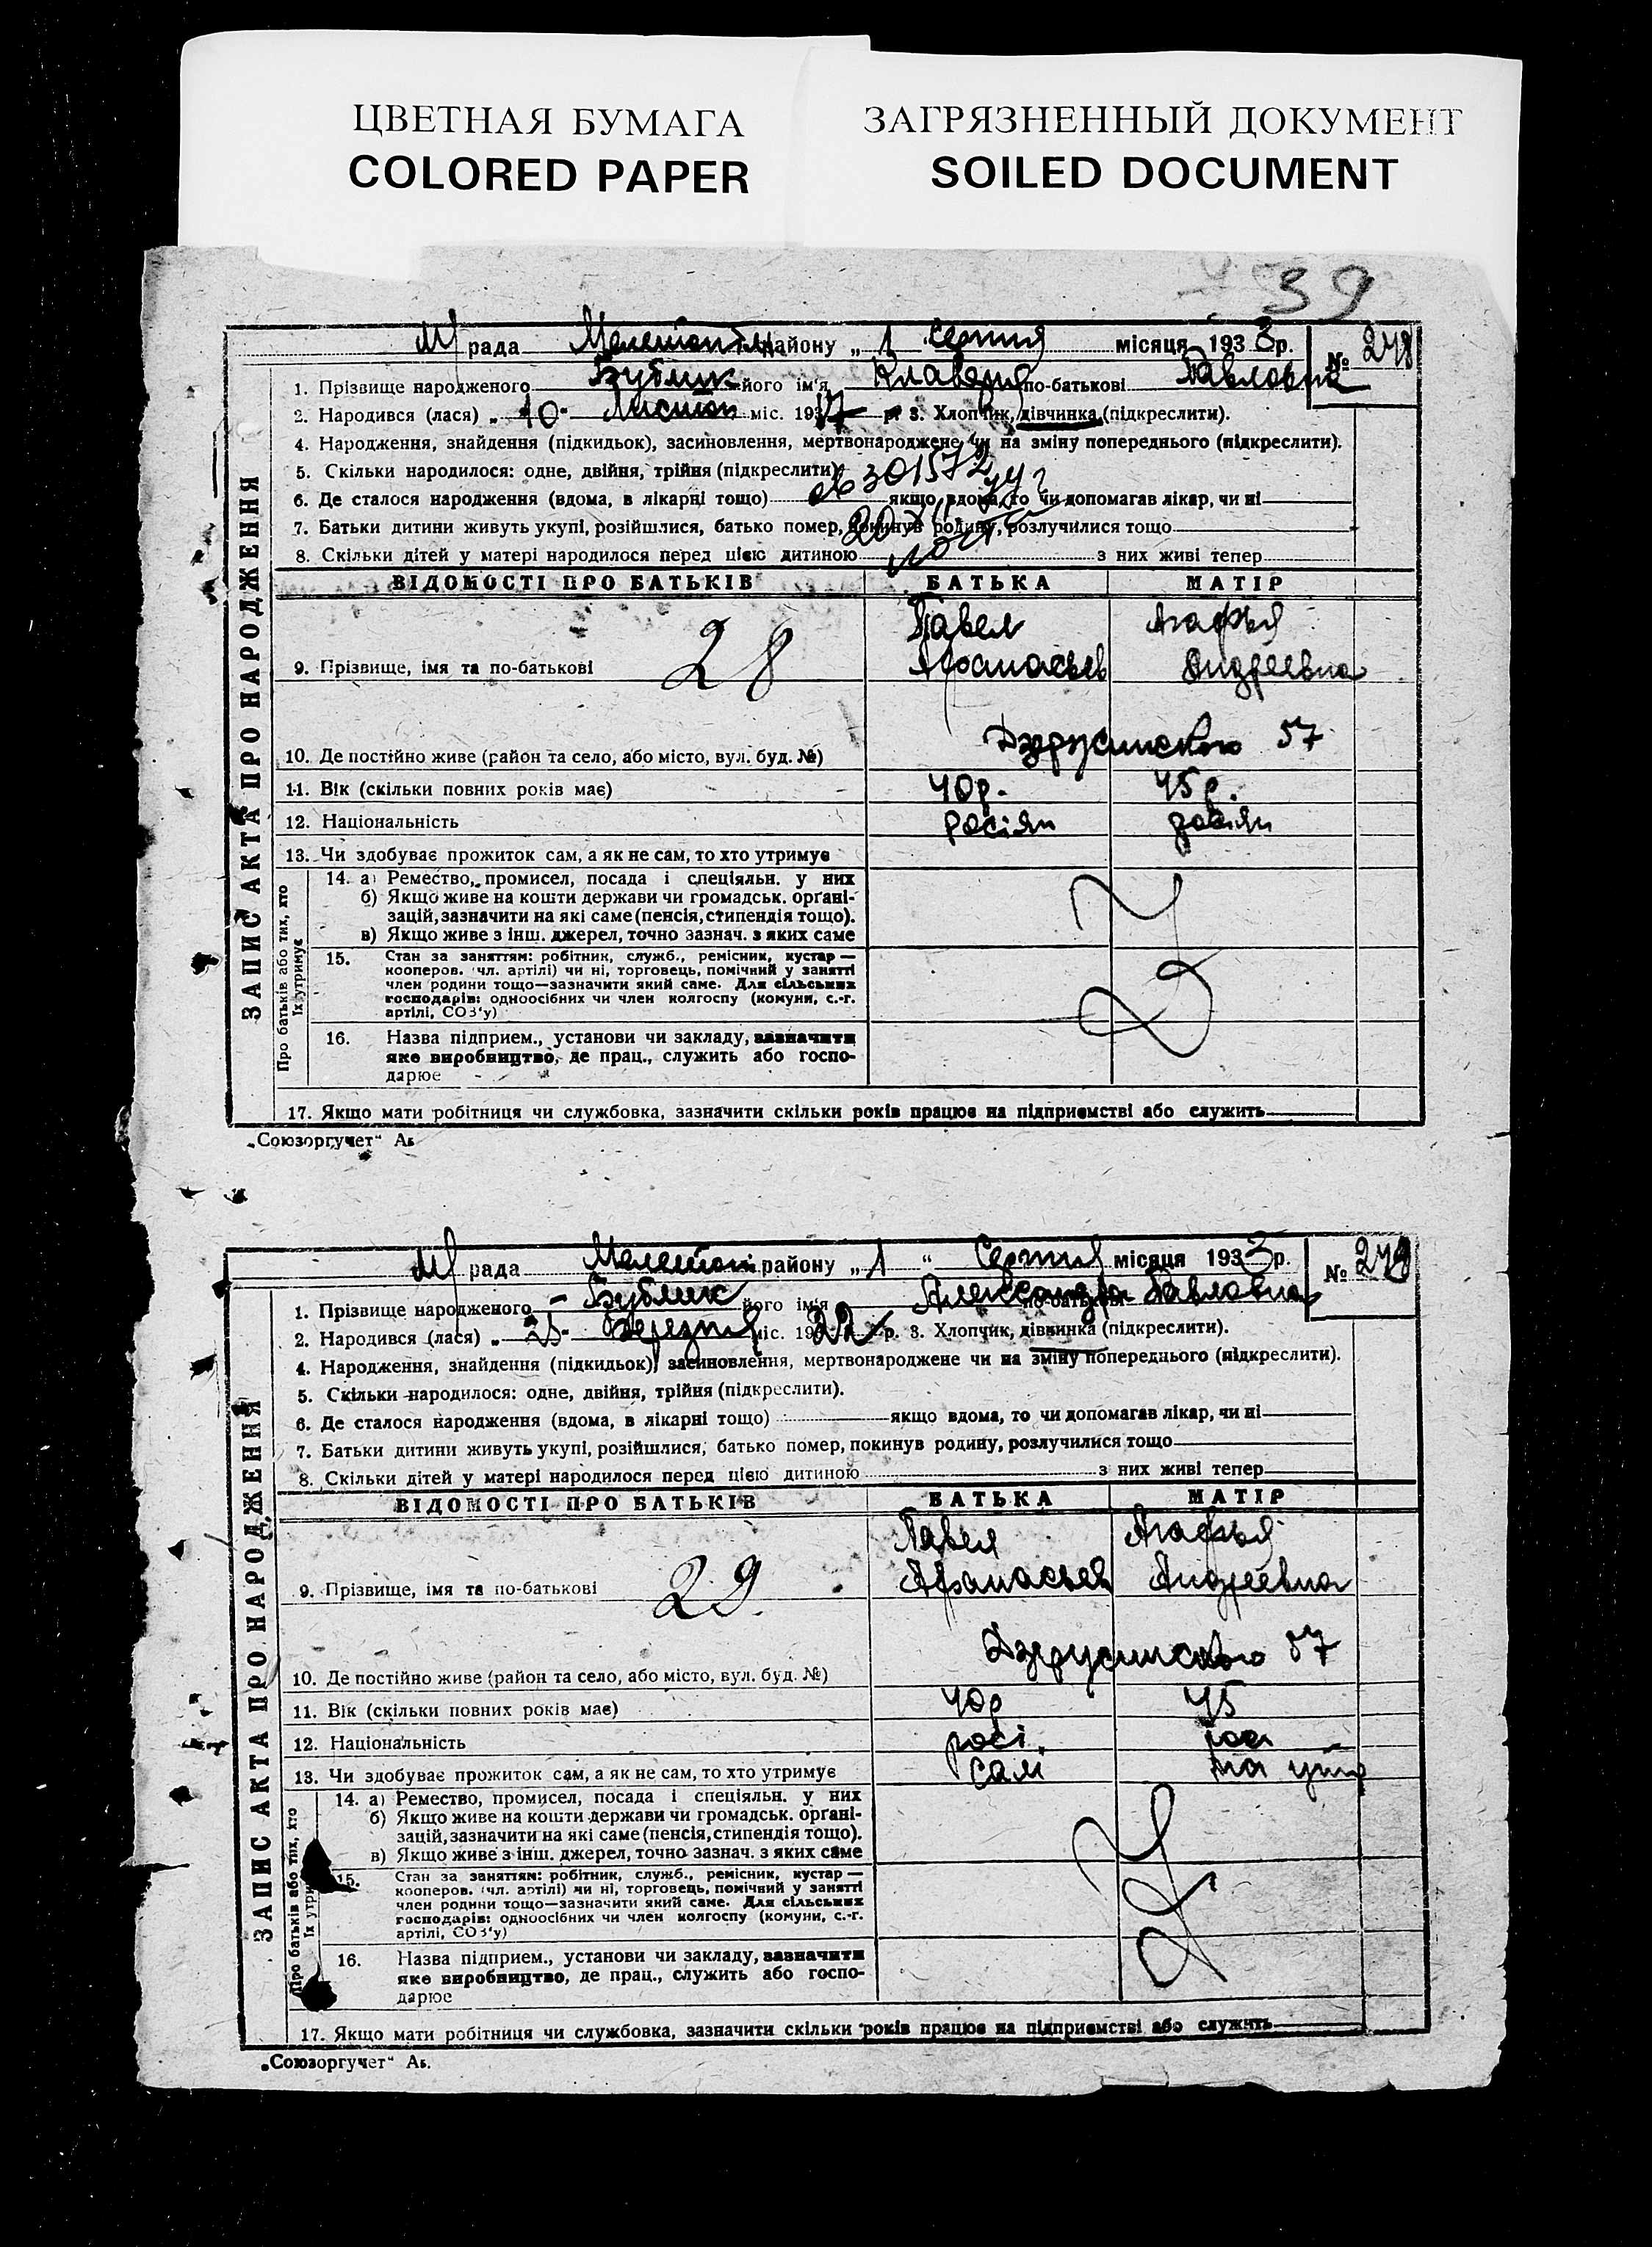 ЦВЕТНАЯ БУМАГА
COLORED PAPER
ЗАГРЯЗНЕННЫЙ ДОКУМЕНТ
SOILED DOCUMENT
39
М рада Мелетоп району „ 1 Серпня місяця 1933 р. № 248
1. Прізвище народженого Бублик його ім'я Клавдия по-батькові Павловна
2. Народився (лася) „ 10 - Листоп міс. 1917 р. 3. Хлопчик, дівчинка (підкреслити).
4. Народження, знайдення (підкидьок), засиновлення, мертвонароджене чи на зміну попереднього (підкреслити).
5. Скільки народилося: одне, двійня, трійня (підкреслити)
6. Де сталося народження (вдома, в лікарні тощо) якщо вдома, то чи допомагав лікар, чи ні
7. Батьки дитини живуть укупі, розійшлися, батько помер, покинув родину, розлучилися тощо
8. Скільки дітей у матері народилося перед цією дитиною з них живі тепер
ЗАПИС АКТА ПРО НАРОДЖЕННЯ
ВІДОМОСТІ ПРО БАТЬКІВ БАТЬКА МАТІР
28
Павел Агафья
9. Прізвище, імя та по-батькові Афанасьев Андреевна
10. Де постійно живе (район та село, або місто, вул. буд. №) Дзержинского 57
11. Вік (скільки повних років має) 40р. 45р.
12. Національність росіян росіян
13. Чи здобуває прожиток сам, а як не сам, то хто утримує
Про батьків або тих, хто їх утримує
14. а) Ремество, промисел, посада і спеціяльн. у них
б) Якщо живе на кошти держави чи громадськ. органі-
зацій, зазначити на які саме (пенсія, стипендія тощо).
в) Якщо живе з інш. джерел, точно зазнач. з яких саме
15. Стан за заняттям: робітник, служб., ремісник, кустар —
кооперов. (чл. артілі) чи ні, торговець, помічний у занятті
член родини тощо—зазначити який саме. Для сільських
господарів: одноосібних чи член колгоспу (комуни, с.-г.
артілі, СОЗ'у)
16. Назва підприєм., установи чи закладу, зазначити
яке виробництво, де прац., служить або госпо-
дарює
17. Якщо мати робітниця чи службовка, зазначити скільки років працює на підприємстві або служить
„Союзоргучет“
М рада Мелетоп району „ 1 “ Серпня місяця 1933 р. № 249
1. Прізвище народженого - Бублик його ім'я Александра по-батькові Павловна
2. Народився (лася) „ 25- Березня міс. 1922 р. 3. Хлопчик, дівчинка (підкреслити).
4. Народження, знайдення (підкидьок), засиновлення, мертвонароджене чи на зміну попереднього (підкреслити).
5. Скільки народилося: одне, двійня, трійня (підкреслити).
6. Де сталося народження (вдома, в лікарні тощо) якщо вдома, то чи допомагав лікар, чи ні
7. Батьки дитини живуть укупі, розійшлися, батько помер, покинув родину, розлучилися тощо
8. Скільки дітей у матері народилося перед цією дитиною з них живі тепер
ЗАПИС АКТА ПРО НАРОДЖЕННЯ
ВІДОМОСТІ ПРО БАТЬКІВ БАТЬКА МАТІР
29
Павел Агафья
9. Прізвище, імя та по-батькові Афанасьев Андреевна
10. Де постійно живе (район та село, або місто, вул. буд. №) Дзержинского 57
11. Вік (скільки повних років має) 40р 45
12. Національність росі. рос
13. Чи здобуває прожиток сам, а як не сам, то хто утримує сам на утр
Про батьків або тих, хто їх утри
14. а) Ремество, промисел, посада і спеціяльн. у них
б) Якщо живе на кошти держави чи громадськ. органі-
зацій, зазначити на які саме (пенсія, стипендія тощо).
в) Якщо живе з інш. джерел, точно зазнач. з яких саме
15. Стан за заняттям: робітник, служб., ремісник, кустар —
кооперов. (чл. артілі) чи ні, торговець, помічний у занятті
член родини тощо—зазначити який саме. Для сільських
господарів: одноосібних чи член колгоспу (комуни, с.-г.
артілі, СОЗ'у)
16. Назва підприєм., установи чи закладу, зазначити
яке виробництво, де прац., служить або госпо-
дарює
17. Якщо мати робітниця чи службовка, зазначити скільки років працює на підприємстві або служить
„Союзоргучет“